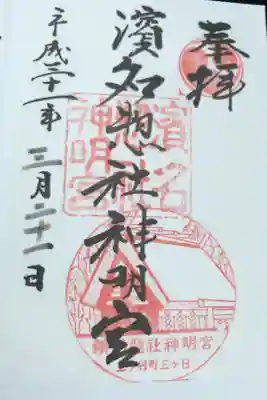 奉拝
濱名惣社神明宮
平成三十一年
三月二十一日
濱名
惣社
神明宮
惣社神明宮
町三ヶ日